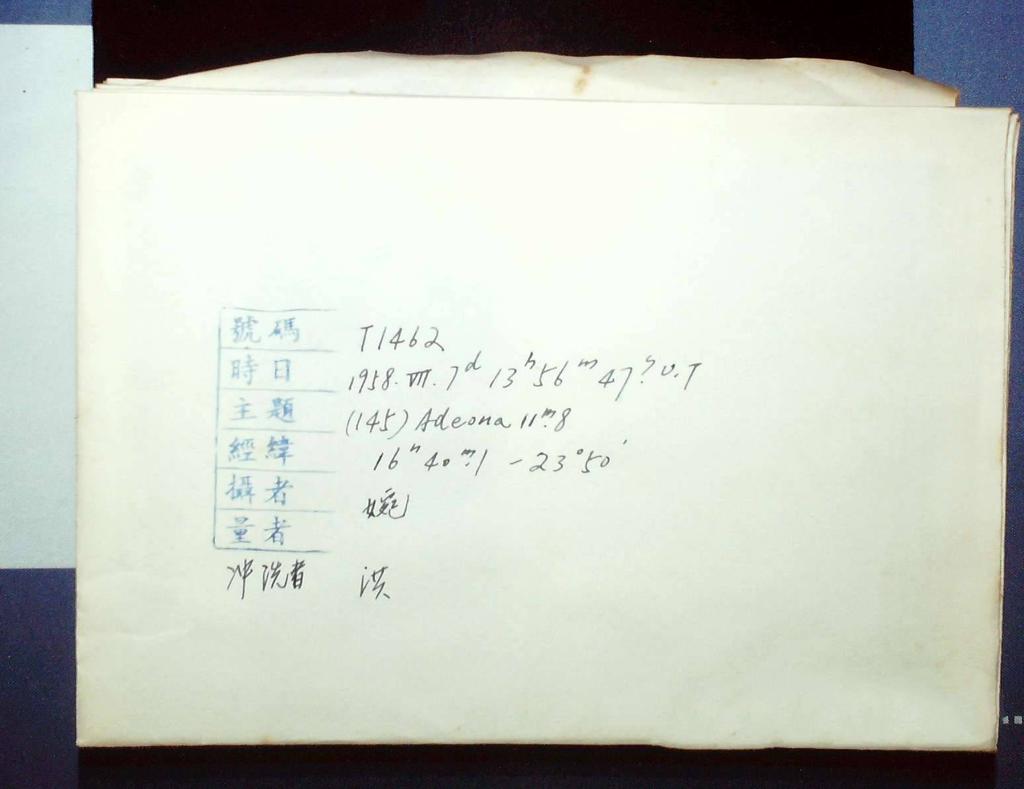 號碼 T1462
時日 1958. VII. 7ᵈ 13ʰ56ᵐ47ˢ. U.T
主題 (145) Adeona 11ᵐ.8
經緯 16ʰ40ᵐ.1 -23°50′
攝者 婉
量者
冲洗者 洪